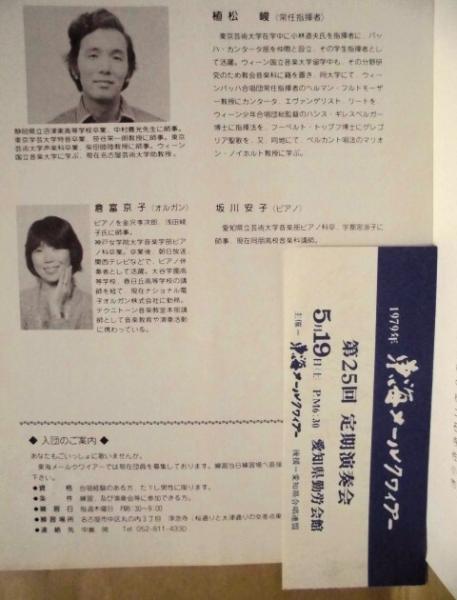 植松 峻(常任指揮者)
東京芸術大学在学中に小林道夫氏を指揮者に、バッ
ハ・カンタータ部を仲間と設立、その学生指揮者とし
て活躍。ウィーン国立音楽大学留学中も、その分野研
究のため教会音楽科に籍を置き、同大学にて、ウィー
ンバッハ合唱団常任指揮者のヘルマン・フルトモーザ
ー教授にカンタータ、エヴァンゲリスト、リートを、
ウィーン少年合唱団総監督のハンス・ギレスベルガー
博士に指揮法を、フーベルト・トップフ博士にグレゴ
リア聖歌を、又、同地にて、ベルカント唱法のマリオ
ン・ノイホルト教授に学ぶ。
静岡県立沼津東高等学校卒業、中村義光先生に師事。
東京学芸大学特音卒業、笹谷栄一朗教授に師事。東京
芸術大学声楽科卒業、柴田睦陸教授に師事。ウィーン
国立音楽大学に学ぶ。現在名古屋芸術大学助教授。
倉富京子(オルガン)
ピアノを金沢孝次郎、浅田綾
子氏に師事。
神戸女学院大学音楽学部ピア
ノ科卒業。卒業後、朝日放送、
関西テレビなどで、ピアノ伴
奏者として活躍。大谷学園高
等学校、春日丘高等学校の講
師を経て、現在ナショナル電
子オルガン株式会社に勤務。
テクニトーン音楽教室本部講
師として音楽教育や演奏活動
に携わっている。
坂川安子(ピアノ)
愛知県立芸術大学音楽部ピアノ科卒、宇都宮淑子に
師事、現在同朋高校音楽科講師。
◆ 入団のご案内 ◆
あなたもごいっしょに歌いませんか。
東海メールクワイアーでは現在団員を募集しております。練習当日練習場へ直接
下さい。
●資格 合唱経験のある方、ただし男性に限ります。
●条件 練習、及び演奏会等に参加できる方。
●練習日 毎週木曜日 PM6:30~9:00
●練習場所 名古屋市中区丸の内3丁目 浄念寺(桜通りと大津通りの交差点東
●連絡先 Tel 052-811-4330
1979年 東海メールクワイアー
第25回 定期演奏会
5月19日(土) P.M6:30 愛知県勤労会館
主催-東海メールクワイアー 後援-愛知県合唱連盟